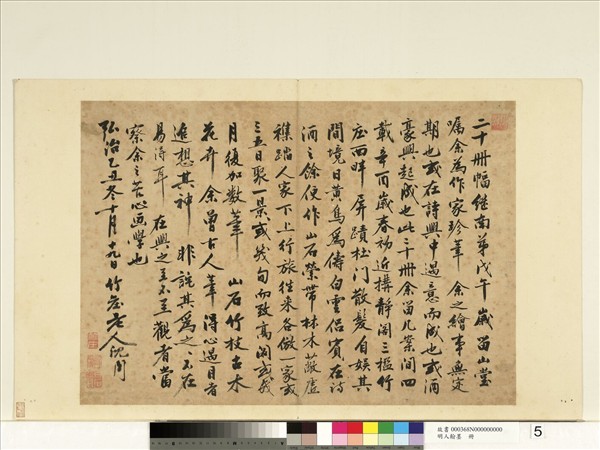 二十冊幅繼南弟戊午歲留山堂
囑余為作家珍筆 余之繪事無定
期也或在詩興中過意而成也或酒
豪興起成也此二十冊余留几案間四
載辛酉歲春初近搆靜閣三楹竹
庄西畔屏蹟杜門散髮自娛其
間境日黃鳥為儔白雲侶賓在詩
酒之餘便作山石縈帶林木蔽虛
樵踏人家下上行旅往來各倣一家或
三五日聚一景或幾句而致高閣或幾
月復加數筆 山石竹枝古木
花卉 余曾古人筆得心過目者
追想其神 非說其為之不在
易得耳 在興之至不至觀者當
察余之苦心画學也
弘治乙丑冬十月十九日竹庄老人沈周
故書 000368N000000000
明人翰墨 冊
5